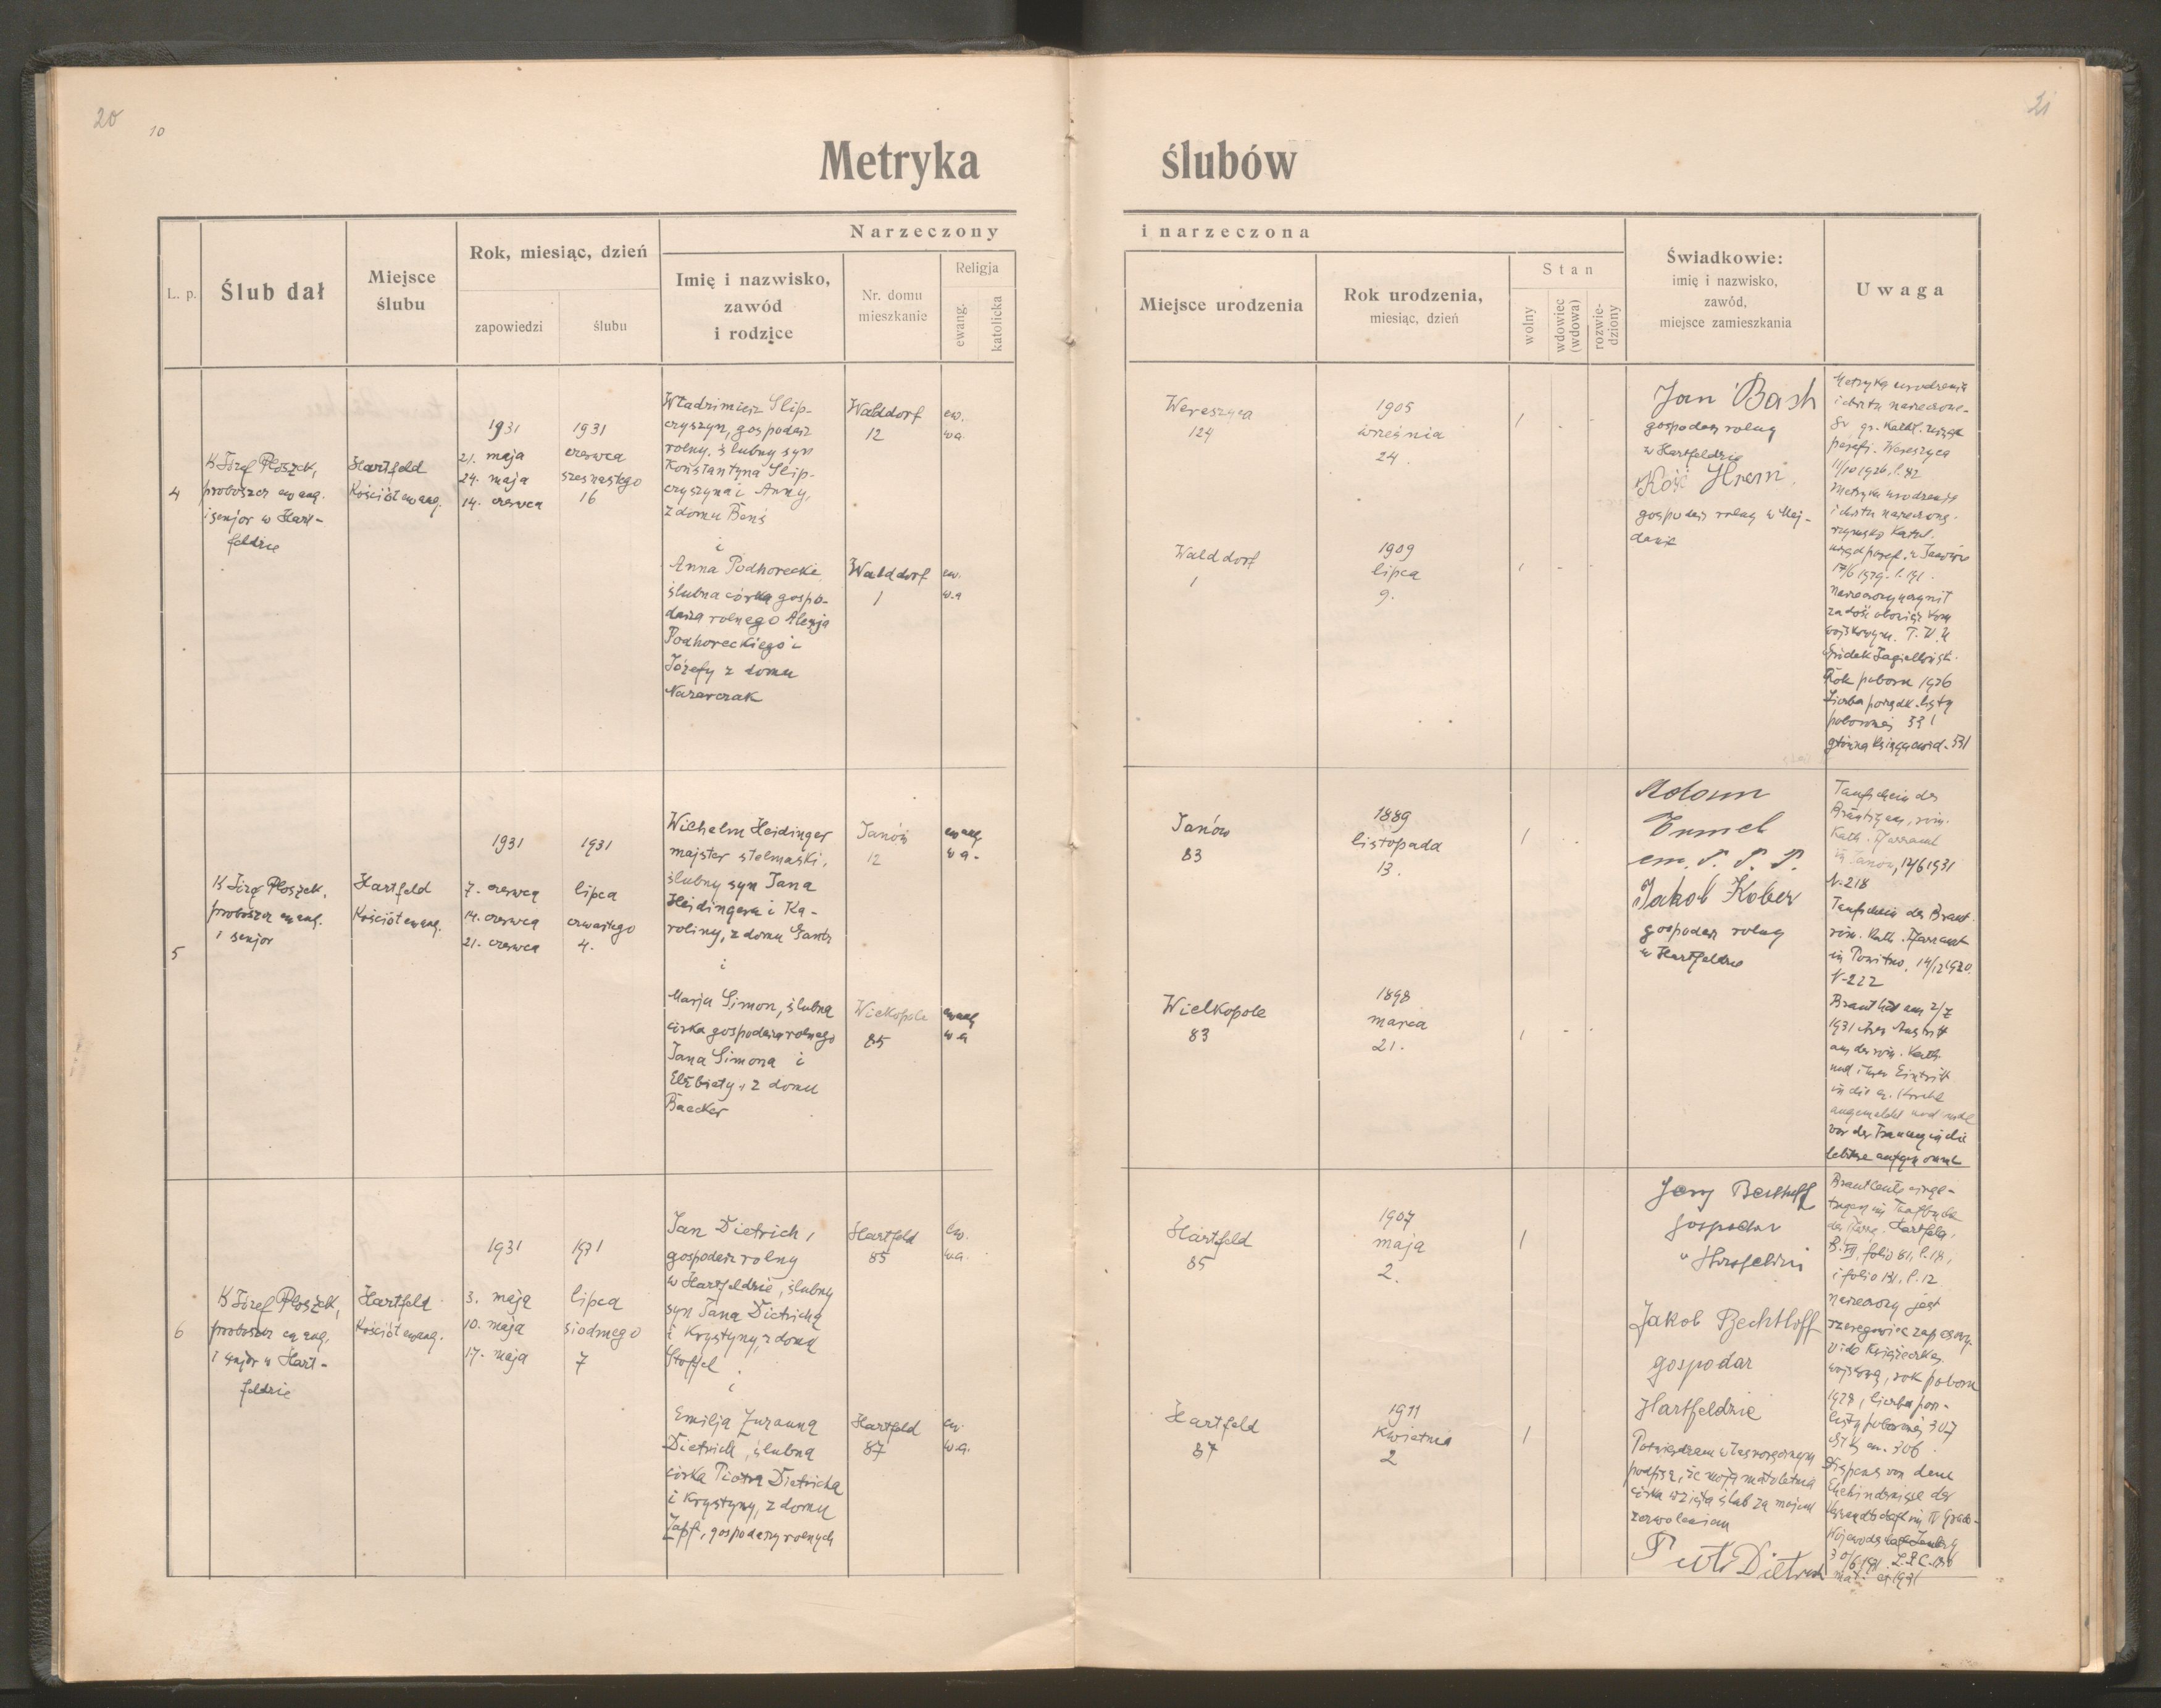 20
10
21
Metryka ślubów
L. p.
Ślub dał
Miejsce
ślubu
Rok, miesiąc, dzień
zapowiedzi
ślubu
Narzeczony
Imię i nazwisko,
zawód
i rodzice
Nr. domu
mieszkanie
Religja
ewang.
katolicka
i narzeczona
Miejsce urodzenia
Rok urodzenia,
miesiąc, dzień
Stan
wolny
wdowiec
(wdowa)
rozwie-
dziony
Świadkowie:
imię i nazwisko,
zawód,
miejsce zamieszkania
Uwaga
4
K Józef Płoszek,
proboszcz ewang.
i senjor w Hart-
feldzie
Hartfeld
Kościół ewang.
1931
21. maja
24. maja
14. czerwca
1931
czerwca
szesnastego
16
Władzimierz Slip-
czyszyn, gospodarz
rolny, ślubny syn
Konstantyna Slip-
czyszyna i Anny,
z domu Benś
i
Anna Podhorecka,
ślubna córka gospo-
darza rolnego Alexja
Podhoreckiego i
Józefy z domu
Nazarczak
Walddorf
12
ew.
wa
Walddorf
1
ew.
w.a
Wereszyca
124
1905
września
24.
1
-
-
Walddorf
1
1909
lipca
9.
1
-
-
Jan Bash
gospodarz rolny
w Hartfeldzie
Kość Hrem,
gospodarz rolny w Maj-
danie
Metryka urodzenia
i chrztu narzeczone-
go gr. kathl. urząd
parafj. Wereszyca
11/10 1926. l. 82
Metryka urodzenia
i chrztu narzeczonej
rzymsko katol.
urząd paraf. w Janowie
narzeczony uczynił
zadość obowiązkom
wojskowym. P. K. U
Gródek Jagielloński.
Rok poboru 1926
Liczba porządk. listy
poborowej 331
główna księga ewid. 531
5
K Józef Płoszek,
proboszcz ewang.
i senjor
Hartfeld
Kościół ewang.
1931
7. czerwca
14. czerwca
21. czerwca
1931
lipca
czwartego
4.
Wilhelm Heidinger
majster stelmaski,
ślubny syn Jana
Heidingera i Ka-
roliny, z domu Gantz
i
Marja Simon, ślubna
córka gospodarza rolnego
Jana Simona i
Elżbiety, z domu
Baecker
Janów
12
ewang
w a.
Wielkopole
85
ewang
w a
Janów
83
1889
listopada
13.
1
-
-
Wielkopole
83
1898
marca
21.
1
-
-
Adam
em. P. P. P.
Jakob Kober
gospodarz rolny
w Hartfeldzie
Taufschein des
Bräutigam, röm.
Kath. Pfarramt
in Janów, 12/6 1931
N. 218
Taufschein der Braut
röm. Kath. Pfarramt
in Powitno, 14/12 1920.
N-222
Braut hat am 2/7
1931 ihren Austritt
aus der röm. Kath.
und ihren Eintritt
in die ev. Kirche
angemeldet und wurde
vor der Trauung in die
letztere aufgenommen
6
K Józef Płoszek,
proboszcz ewang.
i senjor w Hart-
feldzie
Hartfeld
Kościół ewang.
1931
3. maja
10. maja
17. maja
1931
lipca
siódmego
7
Jan Dietrich,
gospodarz rolny
w Hartfeldzie, ślubny
syn Jana Dietricha
i Krystyny, z domu
Stoffel.
i
Emilja Zuzanna
Dietrich, ślubna
córka Piotra Dietricha
i Krystyny, z domu
Zapf, gospodarzy rolnych
Hartfeld
85
ew.
w.a.
Hartfeld
87
ew.
w.a.
Hartfeld
85
1907
maja
2.
1
Hartfeld
87
1911
kwietnia
2
1
Jerzy Bechtloff
gospodar
w
Jakob Bechtloff
gospodar
Hartfeldzie
Potwierdzam własnoręcznym
podpisem, że moja małoletnia
córka wzięła ślub za mojem
zezwoleniem
Piotr Dietrich
Brautleute einge-
tragen im Taufbuche
der Pfarre Hartfeld,
B. III, folio 81, l. 18,
i folio 121, l. 12
narzeczony jest
szeregowiec zapasowy.
vide książeczkę
wojskową, rok poboru
1928, liczba por.-
listy poborowej 307
306
Dispens von dem
Ehehindernisse der
Verwandtschaft im IV Grade-